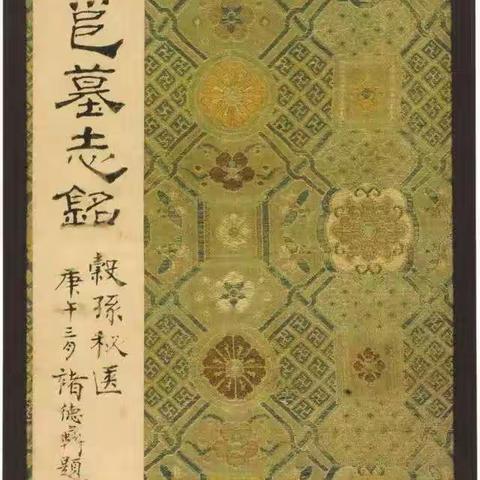 邕墓志銘
穀孫秘匧
庚午三月諸德彝題